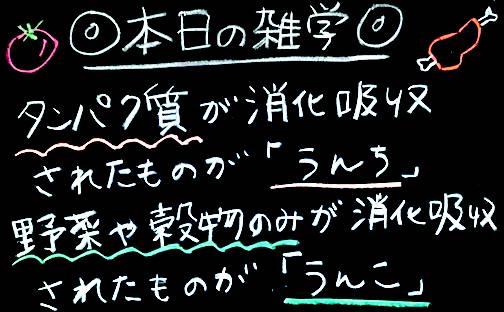 ◎本日の雑学◎
タンパク質が消化吸収
されたものが「うんち」
野菜や穀物のみが消化吸収
されたものが「うんこ」